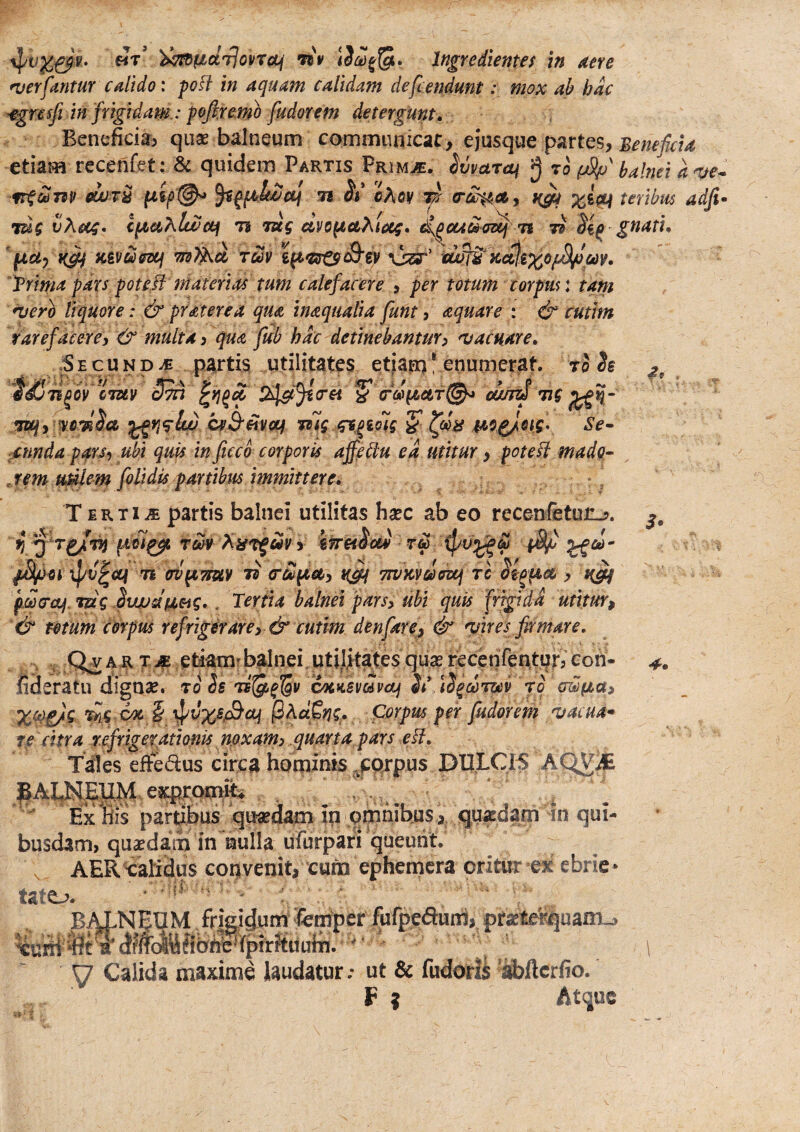 ψυχρῷ. εἶτ' ἀπομάττονται τὸν ἱδρῶτα. Ingredientes in aere
versantur calido: post in aquam calidam descendunt: mox ab hac
egressi in frigidam: postremò sudorem detergunt.
Beneficia, quæ balneum communicat, ejusque partes,
etiam recenset: & quidem PARTIS PRIMÆ. δύναται ἢ τὸ μὲν
πρῶτον αὐτῦ μέρ@ θερμῆναί τε δι' ὅλου τὸ σῶμα, καὶ χέαι
τὰς ὕλας. ὁμαλῦναί τε τὰς ἀνομαλίας. ἀραιῶσαί τε τὸ δέρ
μα, καὶ κενῶσαι πολλὰ τῶν ἔμπροσθεν ὑπ' αὐτῦ κατεχομένων.
Prima pars potest materias tum calefacere, per totum corpus: tam
vero liquore: & præterea quæ inæqualia sunt, æquare: & cutim
rarefacere, & multa, quæ sub hac detinebantur, vacuare.
SECUNDÆ partis utilitates etiam enumerat. τὸ δε
δεύτερον ὅταν ἐπὶ ξηρᾷ διαθέσει τῦ σώματ@ αὐτῷ τις χρῆ-
ται, νοτίδα χρηστὴν ἐνθεῖναι τοῖς στερεοῖς τῦ ζώυ μορίοις. Se-
cunda pars, ubi quis in sicco corporis affectu ea utitur, potest mado-
rem utilem solidis partibus immittere.
TERTIÆ partis balnei utilitas hæc ab eo recensetur.
ἡ ἢ τρίτη μοῖρα τῶν λυτρῶν, ἐπειδὰν τῷ ψυχρῷ μὲν χρώ-
μενοι ψύξαι τε σύμπαν τὸ σῶμα, καὶ πυκνῶσαι τὸ δέρμα, καὶ
ῥῶσαι τὰς δυνάμεις. Tertia balnei pars, ubi quis frigida utitur,
& totum corpus refrigerare, & cutim densare, & vires firmare.
QVARTÆ etiam balnei utilitates quæ recensentur, con-
sideratu dignæ. τὸ δε τέταρτον ἐκκενῶναι δι' ἱδρώτων τὸ σῶμα,
χωρὶς τῆς ἐκ τῦ ψύχεσθαι βλάβης. Corpus per sudorem vacua-
re citra refrigerationis noxam, quarta pars est.
Tales effectus circa hominis corpus DULCIS AQVÆ
BALNEUM expromit.
Ex his partibus quædam in omnibus, quædam in qui-
busdam, quædam in nulla usurpari queunt.
AER calidus convenit, cum ephemera oritur ex ebrie-
tate.
BALNEUM frigidum semper suspectum, præterquam
cum fit à dissolutione spirituum.
▽ Calida maxime laudatur: ut & sudoris abstersio.
F 3 Atque
Beneficia
balnei à ve-
teribus adsi-
gnati.
2.
3.
4.